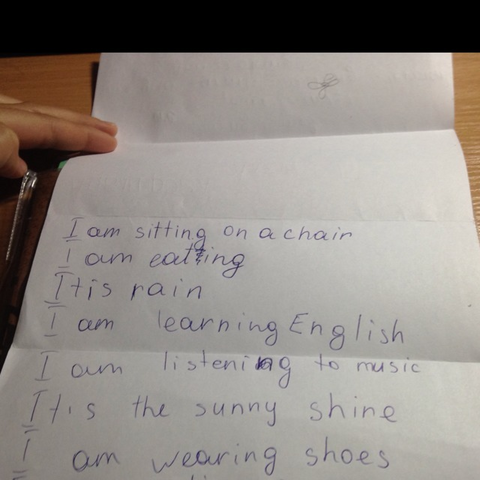 I am sitting on a chair
I am eating
It is rain
I am learning English
I am listening to music
It is the sunny shine
I am wearing shoes